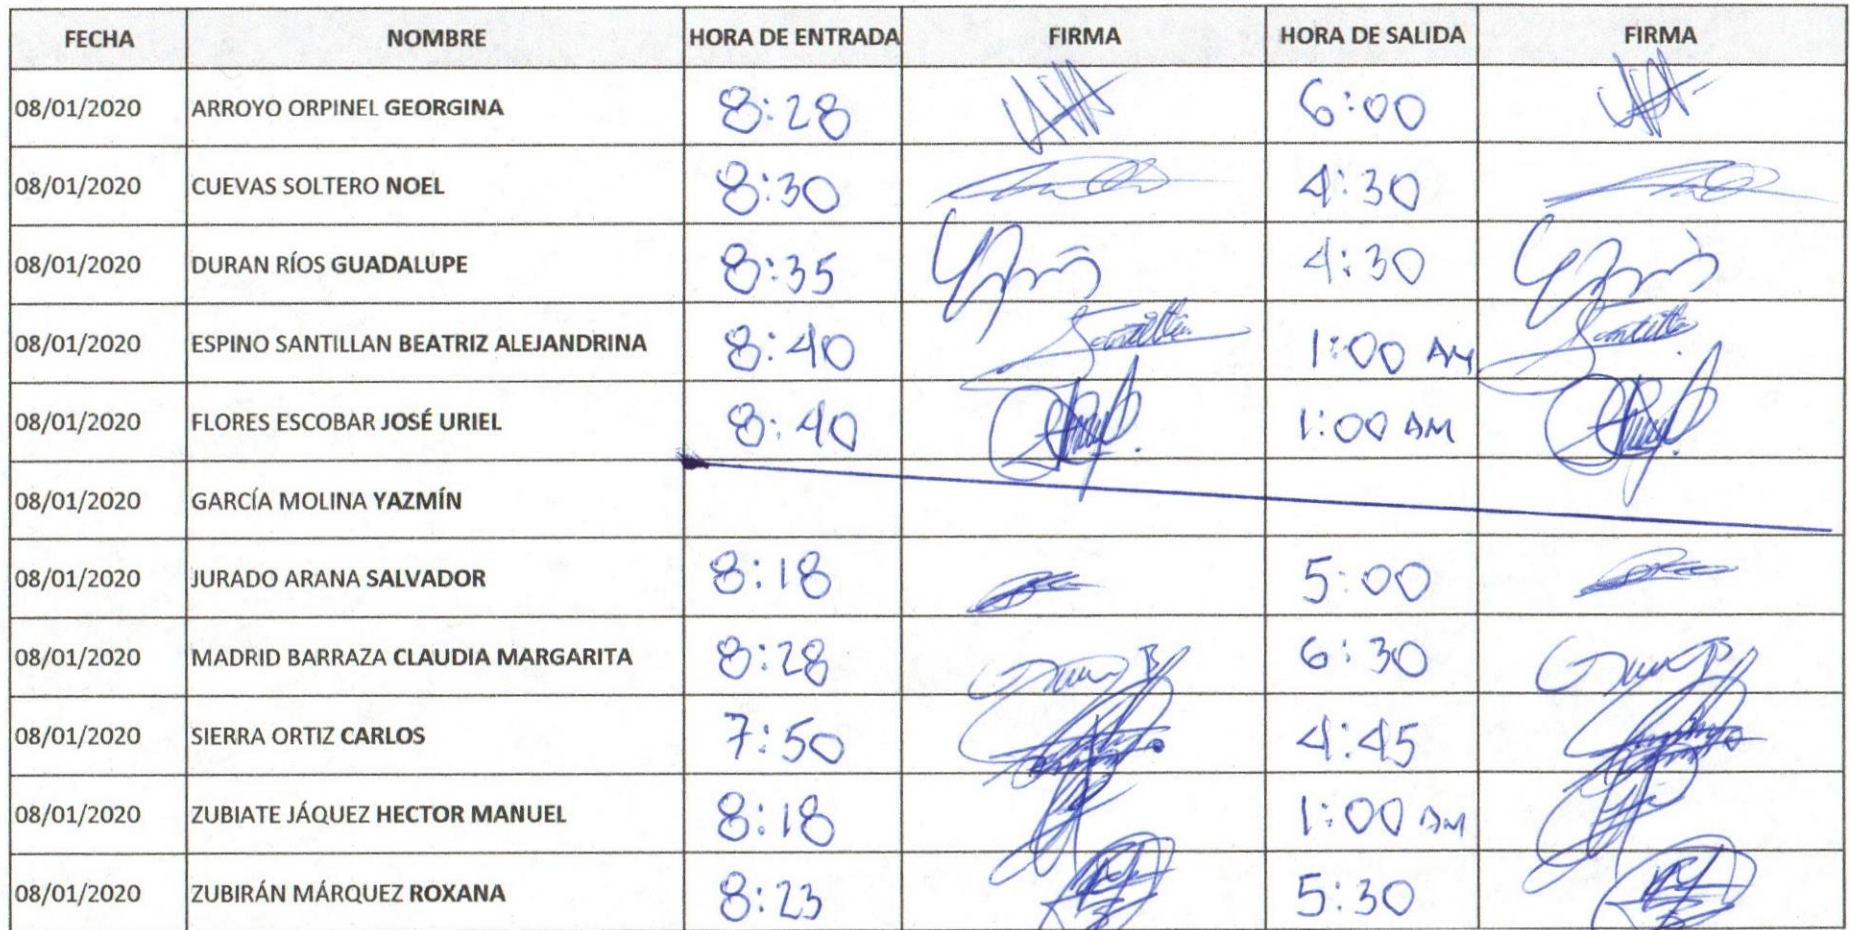 FECHA NOMBRE HORA DE ENTRADA FIRMA HORA DE SALIDA FIRMA
08/01/2020 ARROYO ORPINEL GEORGINA 8:28 6:00
08/01/2020 CUEVAS SOLTERO NOEL 8:30 4:30
08/01/2020 DURAN RÍOS GUADALUPE 8:35 4:30
08/01/2020 ESPINO SANTILLAN BEATRIZ ALEJANDRINA 8:40 1:00 AM
08/01/2020 FLORES ESCOBAR JOSÉ URIEL 8:40 1:00 AM
08/01/2020 GARCÍA MOLINA YAZMÍN
08/01/2020 JURADO ARANA SALVADOR 8:18 5:00
08/01/2020 MADRID BARRAZA CLAUDIA MARGARITA 8:28 6:30
08/01/2020 SIERRA ORTIZ CARLOS 7:50 4:45
08/01/2020 ZUBIATE JÁQUEZ HECTOR MANUEL 8:18 1:00 AM
08/01/2020 ZUBIRÁN MÁRQUEZ ROXANA 8:23 5:30